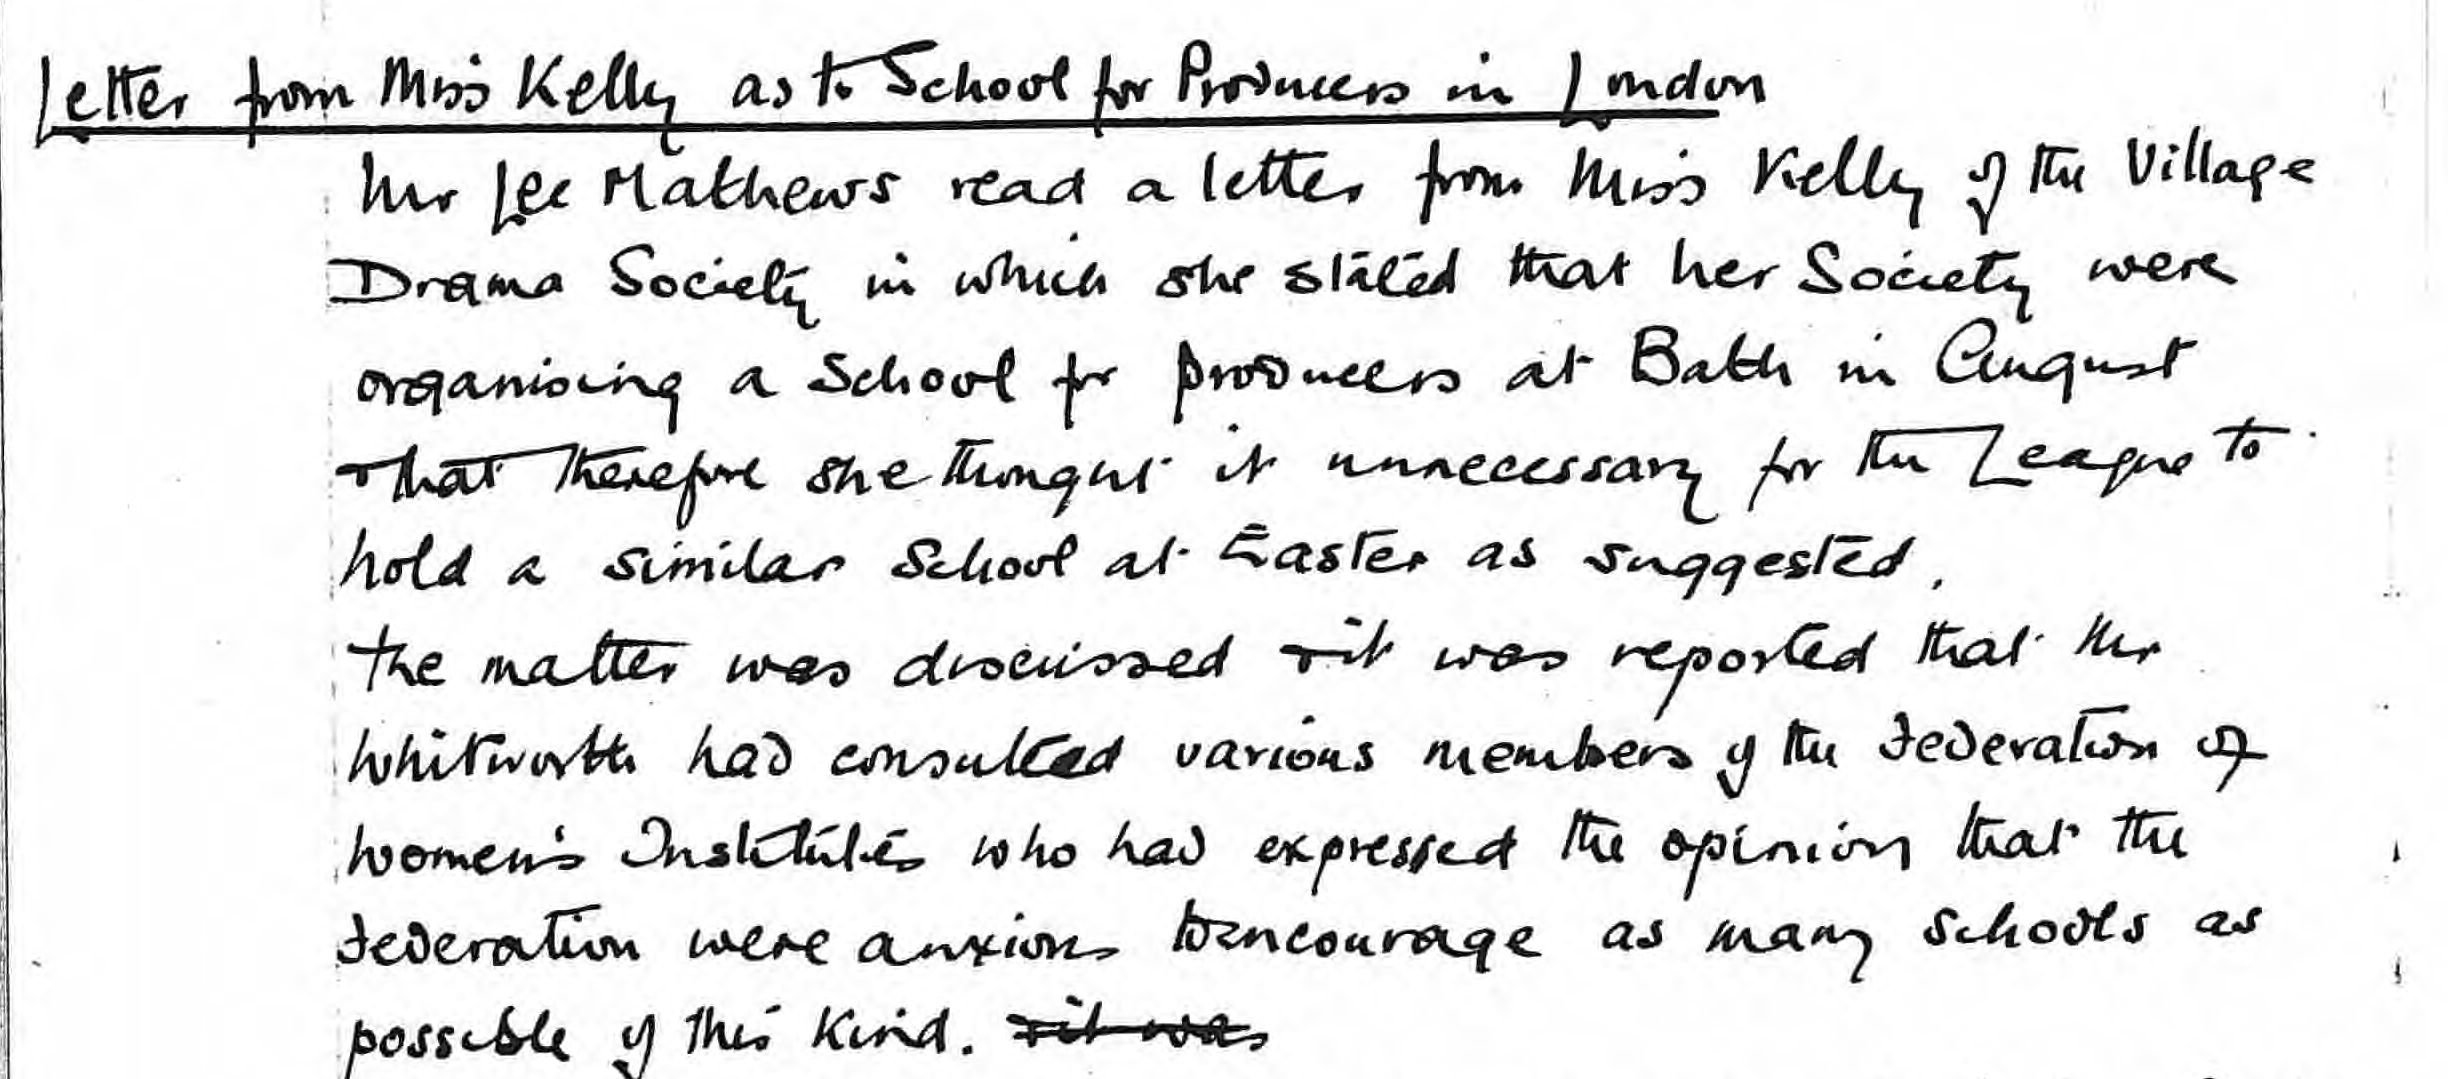 Letter from Miss Kelly as to School for Producers in London
Mr Lee Mathews read a letter from Miss Kelly of the Village
Drama Society in which she stated that her Society were
organising a School for producers at Bath in August
& that therefore she thought it unnecessary for the League to
hold a similar School at Easter as suggested.
The matter was discussed & it was reported that Mr
Whitworth had consulted various members of the Federation of
Women's Institutes who had expressed the opinion that the
Federation were anxious to encourage as many schools as
possible of this kind. & it was